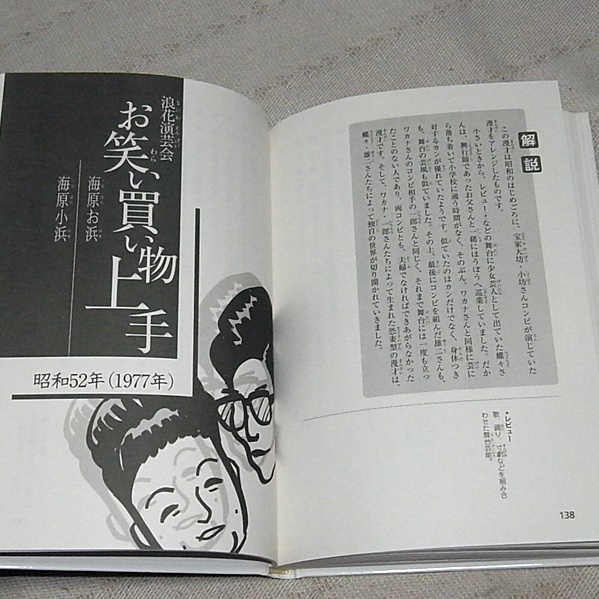 解説
この漫才は昭和のはじめごろに、宝家大坊・小坊さんコンビが演じていた
漫才をアレンジしたものです。
小さいときから、レビュー*などの舞台に少女芸人として出ていた蝶々さ
んは、興行師であったお父さんと一緒にほうぼうへ巡業していました。だか
ら落ち着いて小学校に通う時間がなく、そのぶん、ワカナさんと同様に芸に
対するカンが優れていたようです。似ていたのはカンだけでなく、身体つき
も、舞台の芸風も似ていました。その上、最後にコンビを組んだ雄二さんも、
ワカナさんのコンビ相手の一郎さんと同じく、それまで舞台には一度も立っ
たことのない人であり、両コンビとも、夫婦でなければできあがらなかった
漫才です。そして、ワカナ・一郎さんたちによって生まれた恐妻型の漫才は、
蝶々・雄二さんたちによって独自の世界が切り開かれていきました。
*レビュー
歌、踊り、寸劇などを組み合
わせた舞台芸能。
138
浪花演芸会
お笑い買い物
上手
海原お浜
海原小浜
昭和52年(1977年)